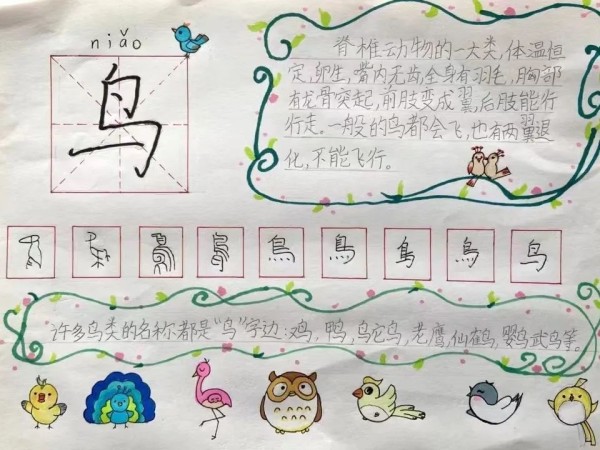 niǎo
鸟
脊椎动物的一大类,体温恒
定,卵生,嘴内无齿全身有羽毛,胸部
有龙骨突起,前肢变成翼,后肢能行
行走。一般的鸟都会飞,也有两翼退
化,不能飞行。
鳥 鳥 鸟
许多鸟类的名称都是“鸟”字边:鸡,鸭,鸵鸟,老鹰,仙鹤,鹦鹉等。